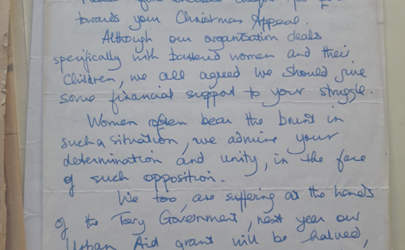 towards your Christmas Appeal.
Although our organisation deals
specifically with battered women and their
children, we all agreed we should give
some financial support to your struggle.
Women often bear the brunt in
such a situation, we admire your
determination and unity, in the face
of such opposition.
We too, are suffering at the hands
of the Tory Government, next year our
Urban Aid grant will be halved,